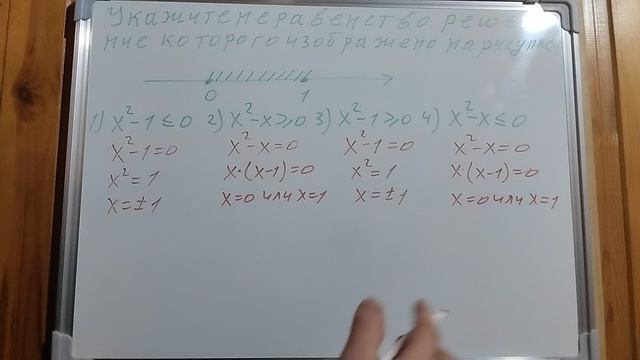 Укажите неравенство реше-
ние которого изображено на рисунке
0 1
1) x²-1≤0 2) x²-x≥0 3) x²-1≥0 4) x²-x≤0
x²-1=0 x²-x=0 x²-1=0 x²-x=0
x²=1 x·(x-1)=0 x²=1 x·(x-1)=0
x=±1 x=0 или x=1 x=±1 x=0 или x=1